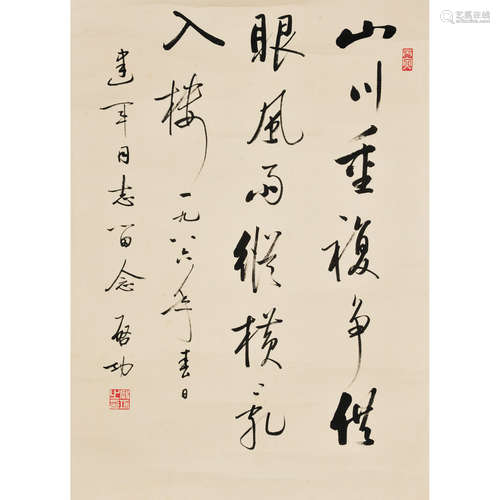 山川重複争供
眼風雨縱橫乱
入楼 一九八六年春日
建军同志留念 启功